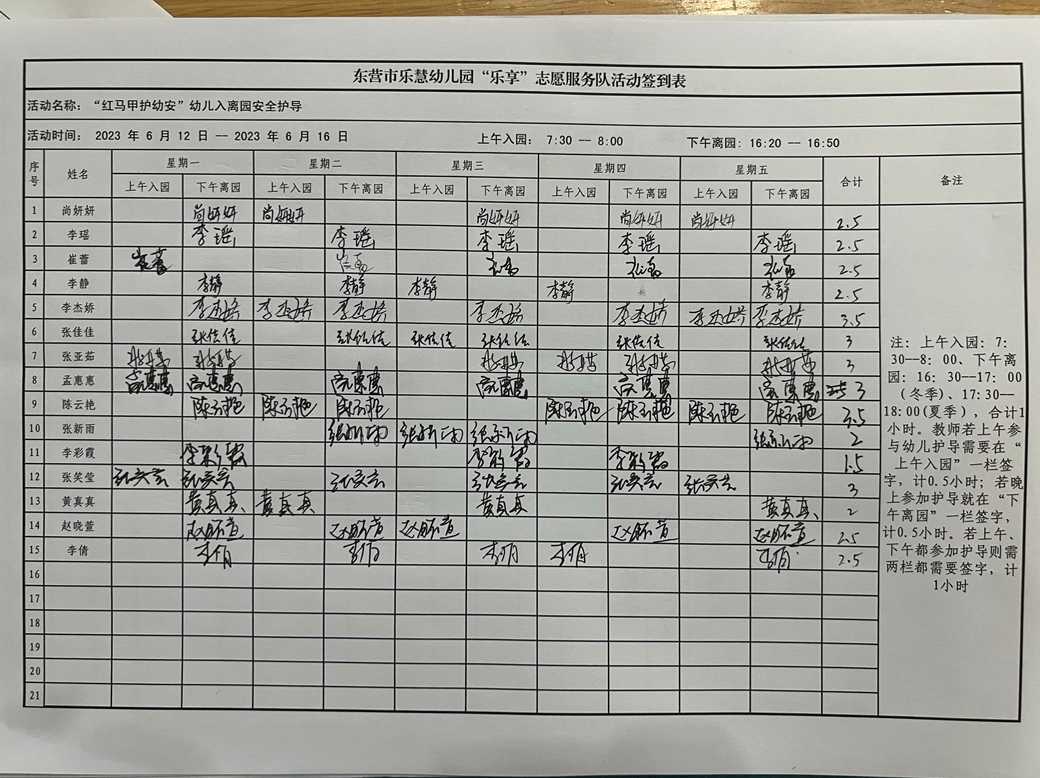 东营市乐慧幼儿园“乐享”志愿服务队活动签到表
活动名称：“红马甲护幼安”幼儿入离园安全护导
活动时间： 2023 年 6 月 12 日 -- 2023 年 6 月 16 日 上午入园： 7:30 -- 8:00 下午离园：16:20 -- 16:50
序号 姓名 星期一 星期二 星期三 星期四 星期五 合计 备注
上午入园 下午离园 上午入园 下午离园 上午入园 下午离园 上午入园 下午离园 上午入园 下午离园
1 尚妍妍 尚妍妍 尚妍妍 尚妍妍 尚妍妍 尚妍妍 2.5
2 李瑶 李瑶 李瑶 李瑶 李瑶 李瑶 2.5
3 崔蕾 崔蕾 崔蕾 2.5
4 李静 李静 李静 李静 李静 李静 2.5
5 李杰娇 李杰娇 李杰娇 李杰娇 李杰娇 李杰娇 李杰娇 李杰娇 3.5
6 张佳佳 张佳佳 张佳佳 张佳佳 张佳佳 张佳佳 张佳佳 3
7 张亚茹 张亚茹 张亚茹 张亚茹 张亚茹 张亚茹 张亚茹 3
8 孟惠惠 3
9 陈云艳 陈云艳 陈云艳 陈云艳 陈云艳 陈云艳 陈云艳 陈云艳 3.5
10 张新雨 张新雨 张新雨 张新雨 张新雨 2
11 李彩霞 李彩霞 李彩霞 李彩霞 1.5
12 张笑莹 张笑莹 张笑莹 张笑莹 张笑莹 张笑莹 张笑莹 3
13 黄真真 黄真真 黄真真 黄真真 黄真真 2
14 赵晓萱 赵晓萱 赵晓萱 赵晓萱 赵晓萱 赵晓萱 2.5
15 李倩 李倩 李倩 李倩 李倩 李倩 2.5
16
17
18
19
20
21
注：上午入园：7:
30--8：00、下午离
园：16：30--17：00
(冬季)、17:30--
18:00(夏季），合计1
小时。教师若上午参
与幼儿护导需要在“
上午入园”一栏签
字，计0.5小时；若晚
上参加护导就在“下
午离园”一栏签字，
计0.5小时。若上午、
下午都参加护导则需
两栏都需要签字，计
1小时